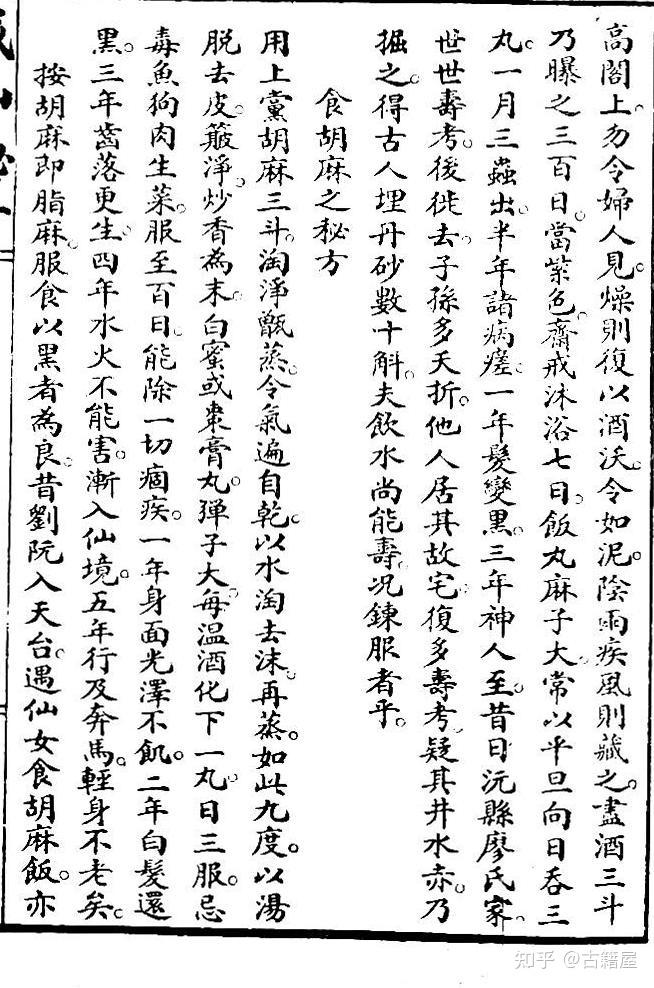 高閣上。勿令婦人見。燥則復以酒沃。令如泥。陰雨疾風則藏之。盡酒三斗
乃曝之三百日。當紫色。齋戒沐浴七日。飯丸麻子大。常以平旦向日吞三
丸。一月三蟲出。半年諸病瘥。一年髮變黑。三年神人至。昔日沅縣廖氏家。
世世壽考。後徙去。子孫多夭折。他人居其故宅。復多壽考。疑其井水赤。乃
掘之。得古人埋丹砂數十斛。夫飲水尚能壽。况鍊服者乎。
食胡麻之秘方
用上黨胡麻三斗。淘淨甑蒸。令氣遍自乾。以水淘去沫。再蒸。如此九度。以湯
脱去皮。簸淨。炒香為末。白蜜或棗膏丸。彈子大。每温酒化下一丸。日三服。忌
毒魚狗肉生菜。服至百日。能除一切痼疾。一年身面光澤不飢。二年白髮還
黑。三年齒落更生。四年水火不能害。漸入仙境。五年行及奔馬。輕身不老矣。
按胡麻即脂麻。服食以黑者為良。昔劉阮入天台。遇仙女食胡麻飯。亦
知乎 @古籍屋